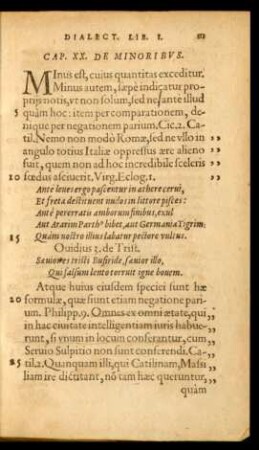 DIALECT. LIB. I.
CAP. XX. DE MINORIBVS.
MInus est, cuius quantitas exceditur.
Minus autem, sæpè indicatur pro
prijs notis, vt non solum, sed ne: ante illud
quàm hoc: item per comparationem, de
nique per negationem parium. Cic. 2. Ca
til. Nemo non modò Romæ, sed ne vllo in ,,
angulo totius Italiæ oppressus ære alieno ,,
fuit, quem non ad hoc incredibile sceleris ,,
10 fœdus asciuerit. Virg. Eclog. 1. ,,
Antè leues ergo pascentur in æthere cerui,
Et freta destituent nudos in littore pisces:
Antè pererratis amborum finibus, exul
Aut Ararim Parthus bibet, aut Germania Tigrim:
15 Quàm nostro illius labatur pectore vultus.
Ouidius 3. de Trist.
Sæuior es tristi Busiride, sæuior illo,
Qui falsum lento torruit igne bouem.
Atque huius eiusdem speciei sunt hæ
20 formulæ, quæ fiunt etiam negatione pa
rium. Philipp. 9. Omnes ex omni ætate, qui ,,
in hac ciuitate intelligentiam iuris habue ,,
runt, si vnum in locum conferantur, cum ,,
Seruio Sulpitio non sunt conferendi. Ca- ,,
25 til. 2. Quanquam illi, qui Catilinam, Massi ,,
liam ire dictitant, nō tam hæc queruntur, ,,
quàm